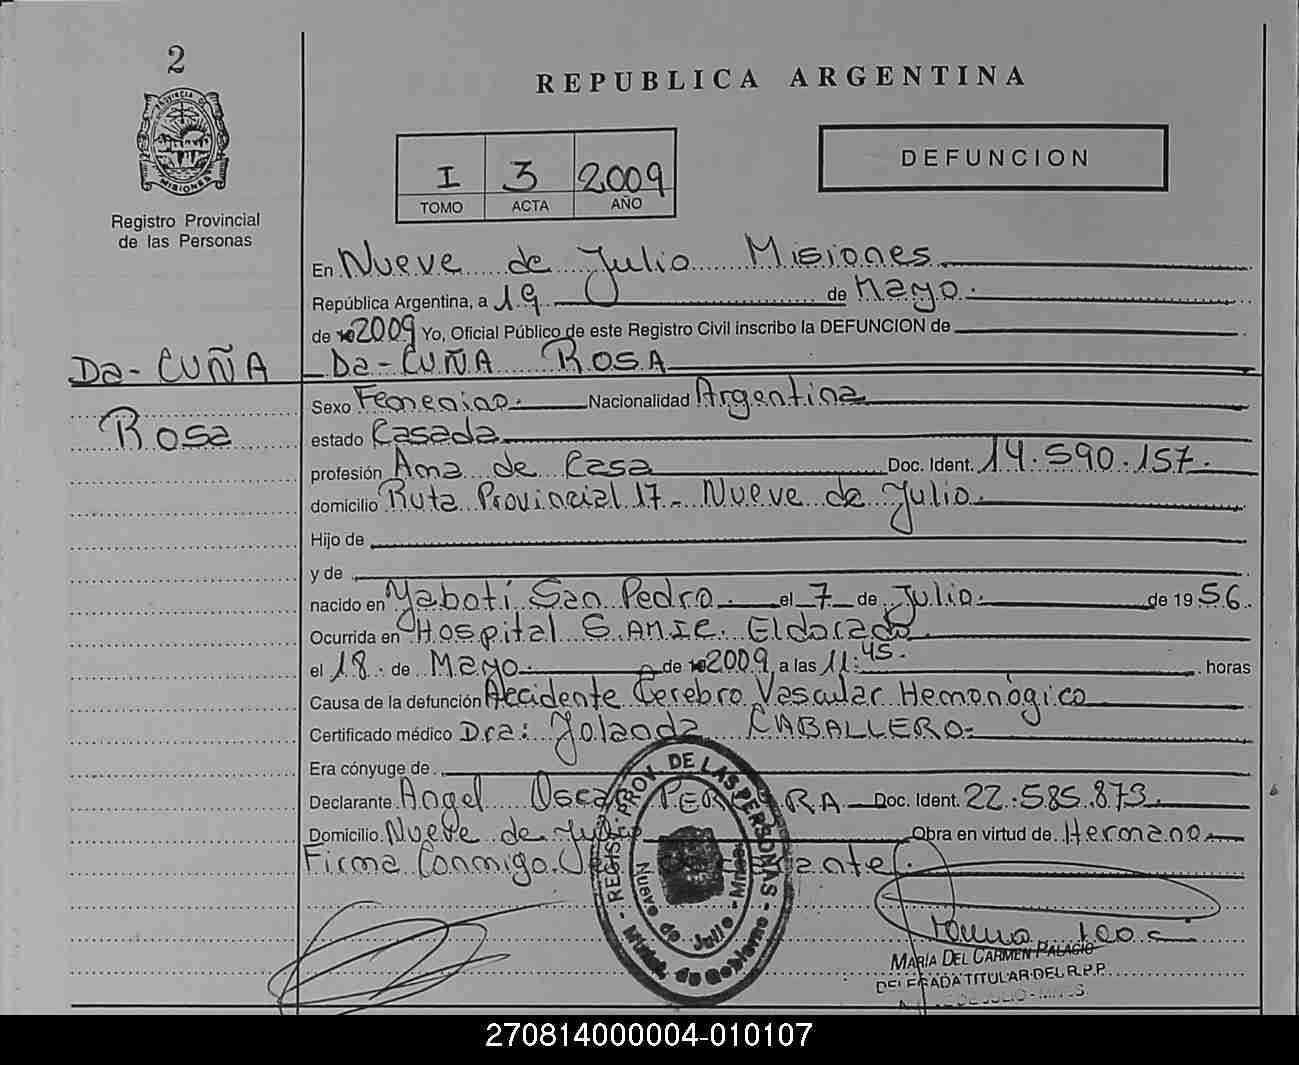 2
PROVINCIA DE
MISIONES
Registro Provincial
de las Personas
REPUBLICA ARGENTINA
I 3 2009
TOMO ACTA AÑO
DEFUNCION
En Nueve de Julio Misiones
República Argentina, a 19 de Mayo.
de 2009 Yo, Oficial Público de este Registro Civil inscribo la DEFUNCION de
Da-CUÑA Da-CUÑA ROSA
Rosa
Sexo Femenino. Nacionalidad Argentina
estado Casada
profesión Ama de Casa Doc. Ident. 14.590.157.
domicilio Ruta Provincial 17- Nueve de Julio.
Hijo de
y de
nacido en Yabotí San Pedro. el 7 de Julio. de 19 56.
Ocurrida en Hospital S.AMIC. Eldorado
el 18. de Mayo. de 2009 a las 11:45. horas
Causa de la defunción Accidente Cerebro Vascular Hemorrógico
Certificado médico Dra: Yolanda CABALLERO.
Era cónyuge de
Declarante Angel Oscar Doc. Ident. 22.585.873.
Domicilio Nueve de Julio Obra en virtud de Hermano
Firma Conmigo
REGIST. PROV. DE LAS PERSONAS
Nueve de Julio - Mnes.
Minist. de Gobierno
MARIA DEL CARMEN PALACIO
DELEGADA TITULAR DEL R.P.P.
270814000004-010107